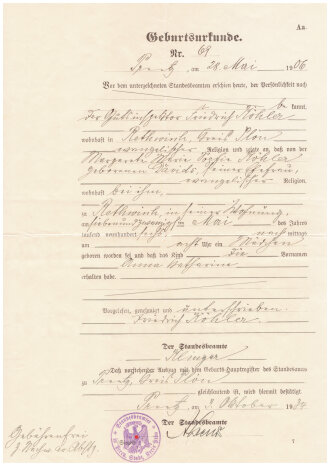 Aa.
Geburtsurkunde.
Nr. 69
Preetz, am 28. Mai 1906
Vor dem unterzeichneten Standesbeamten erschien heute, der Persönlichkeit nach
be kannt,
der Gutsinspektor Friedrich Köhler
wohnhaft in Rethwisch, Kreis Plön
evangelischer Religion und zeigte an, daß von der
Margarete Marie Sophie Köhler
geborenen, seiner Ehefrau,
evangelischer Religion,
wohnhaft bei ihm,
zu Rethwisch, in seiner Wohnung,
am siebenundzwanzigsten Mai des Jahres
tausend neunhundert sechs nach mittags
um acht Uhr ein Mädchen
geboren worden sei und daß das Kind die Vornamen
Anna Katharine
erhalten habe.
Vorgelesen, genehmigt und unterschrieben.
Friedrich Köhler
Der Standesbeamte
Daß vorstehender Auszug mit dem Geburts-Hauptregister des Standesamts
zu Preetz, Kreis Plön
gleichlautend ist, wird hiermit bestätigt.
Preetz, am 3. Oktober 1934
Der Standesbeamte
Gebührenfrei